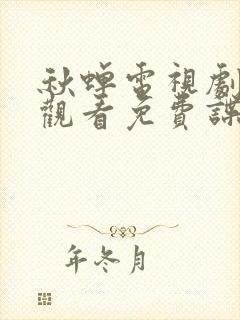 秋蟬電視劇
觀看免費諜
年冬月